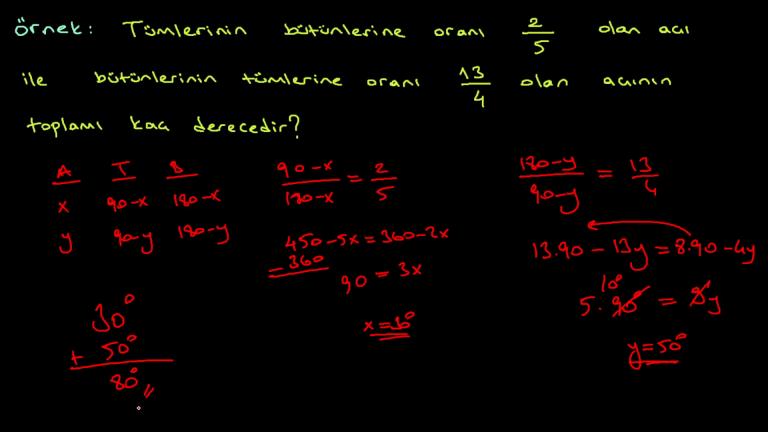 örnek: Tümlerinin bütünlerine oranı 2/5 olan açı
ile bütünlerinin tümlerine oranı 13/4 olan açının
toplamı kaç derecedir?
A T B
x 90-x 180-x
y 90-y 180-y
90-x/180-x = 2/5
450-5x=360-2x
-360
90 = 3x
x=30°
180-y/90-y = 13/4
13.90-13y=8.90-4y
10°
5.90° = 9y
y=50°
30°
+ 50°
80°//